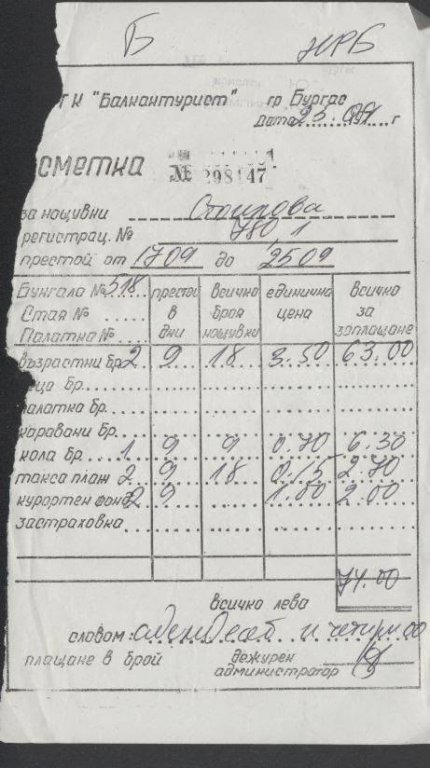 Б НРБ
ТК "Балкантурист" гр Бургас
дата 25.09 г
сметка № 298147
за нощувки Стоилова
регистрац. № 780/1
престой от 1709 до 2509
Бунгало № 518 престой всичко единична всичко
Стая № в броя цена за
Палатка № дни нощувки заплащане
възрастни бр. 2 9 18 3.50 63.00
еца бр.
палатка бр.
каравани бр.
кола бр. 1 9 9 0.70 6.30
такса плаж 2 9 18 0.15 2.70
курортен фонд 2 9 1.00 2.00
застраховка
74.00
всичко лева
словом: седемдесет и четири 00
плащане в брой дежурен
администратор